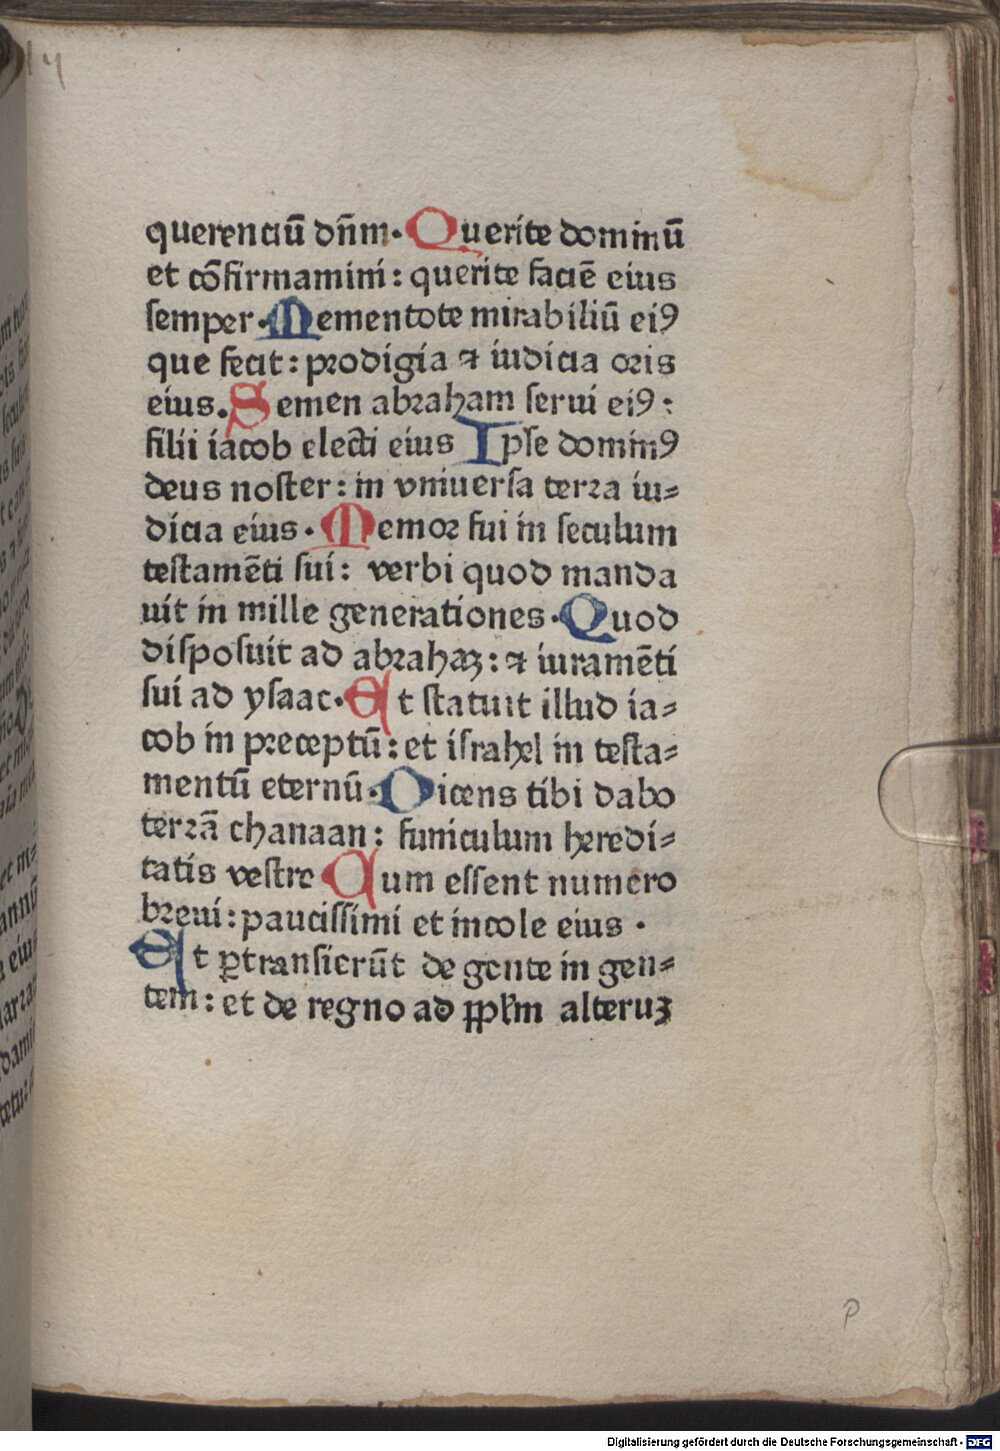 querenciū dn̄m· Querite dominū
et cōfirmamini: querite faciē eius
semper· Mementote mirabiliū eiꝰ
que fecit: prodigia ⁊ iudicia oris
eius. Semen abraham serui eiꝰ:
filii iacob electi eius Ipse dominꝰ
deus noster: in vniuersa terra iu⸗
dicia eius· Memor fui in seculum
testamēti sui: verbi quod manda
uit in mille generationes· Quod
disposuit ad abrahaʒ: ⁊ iuramēti
sui ad ysaac· Et statuit illud ia⸗
cob in preceptū: et israhel in testa⸗
mentū eternū· Dicens tibi dabo
terrā chanaan: funiculum heredi⸗
tatis vestre Cum essent numero
breui: paucissimi et incole eius ·
Et ꝑtransierūt de gente in gen⸗
tem: et de regno ad pplm̄ alteruʒ
p
Digitalisierung gefördert durch die Deutsche Forschungsgemeinschaft - DFG